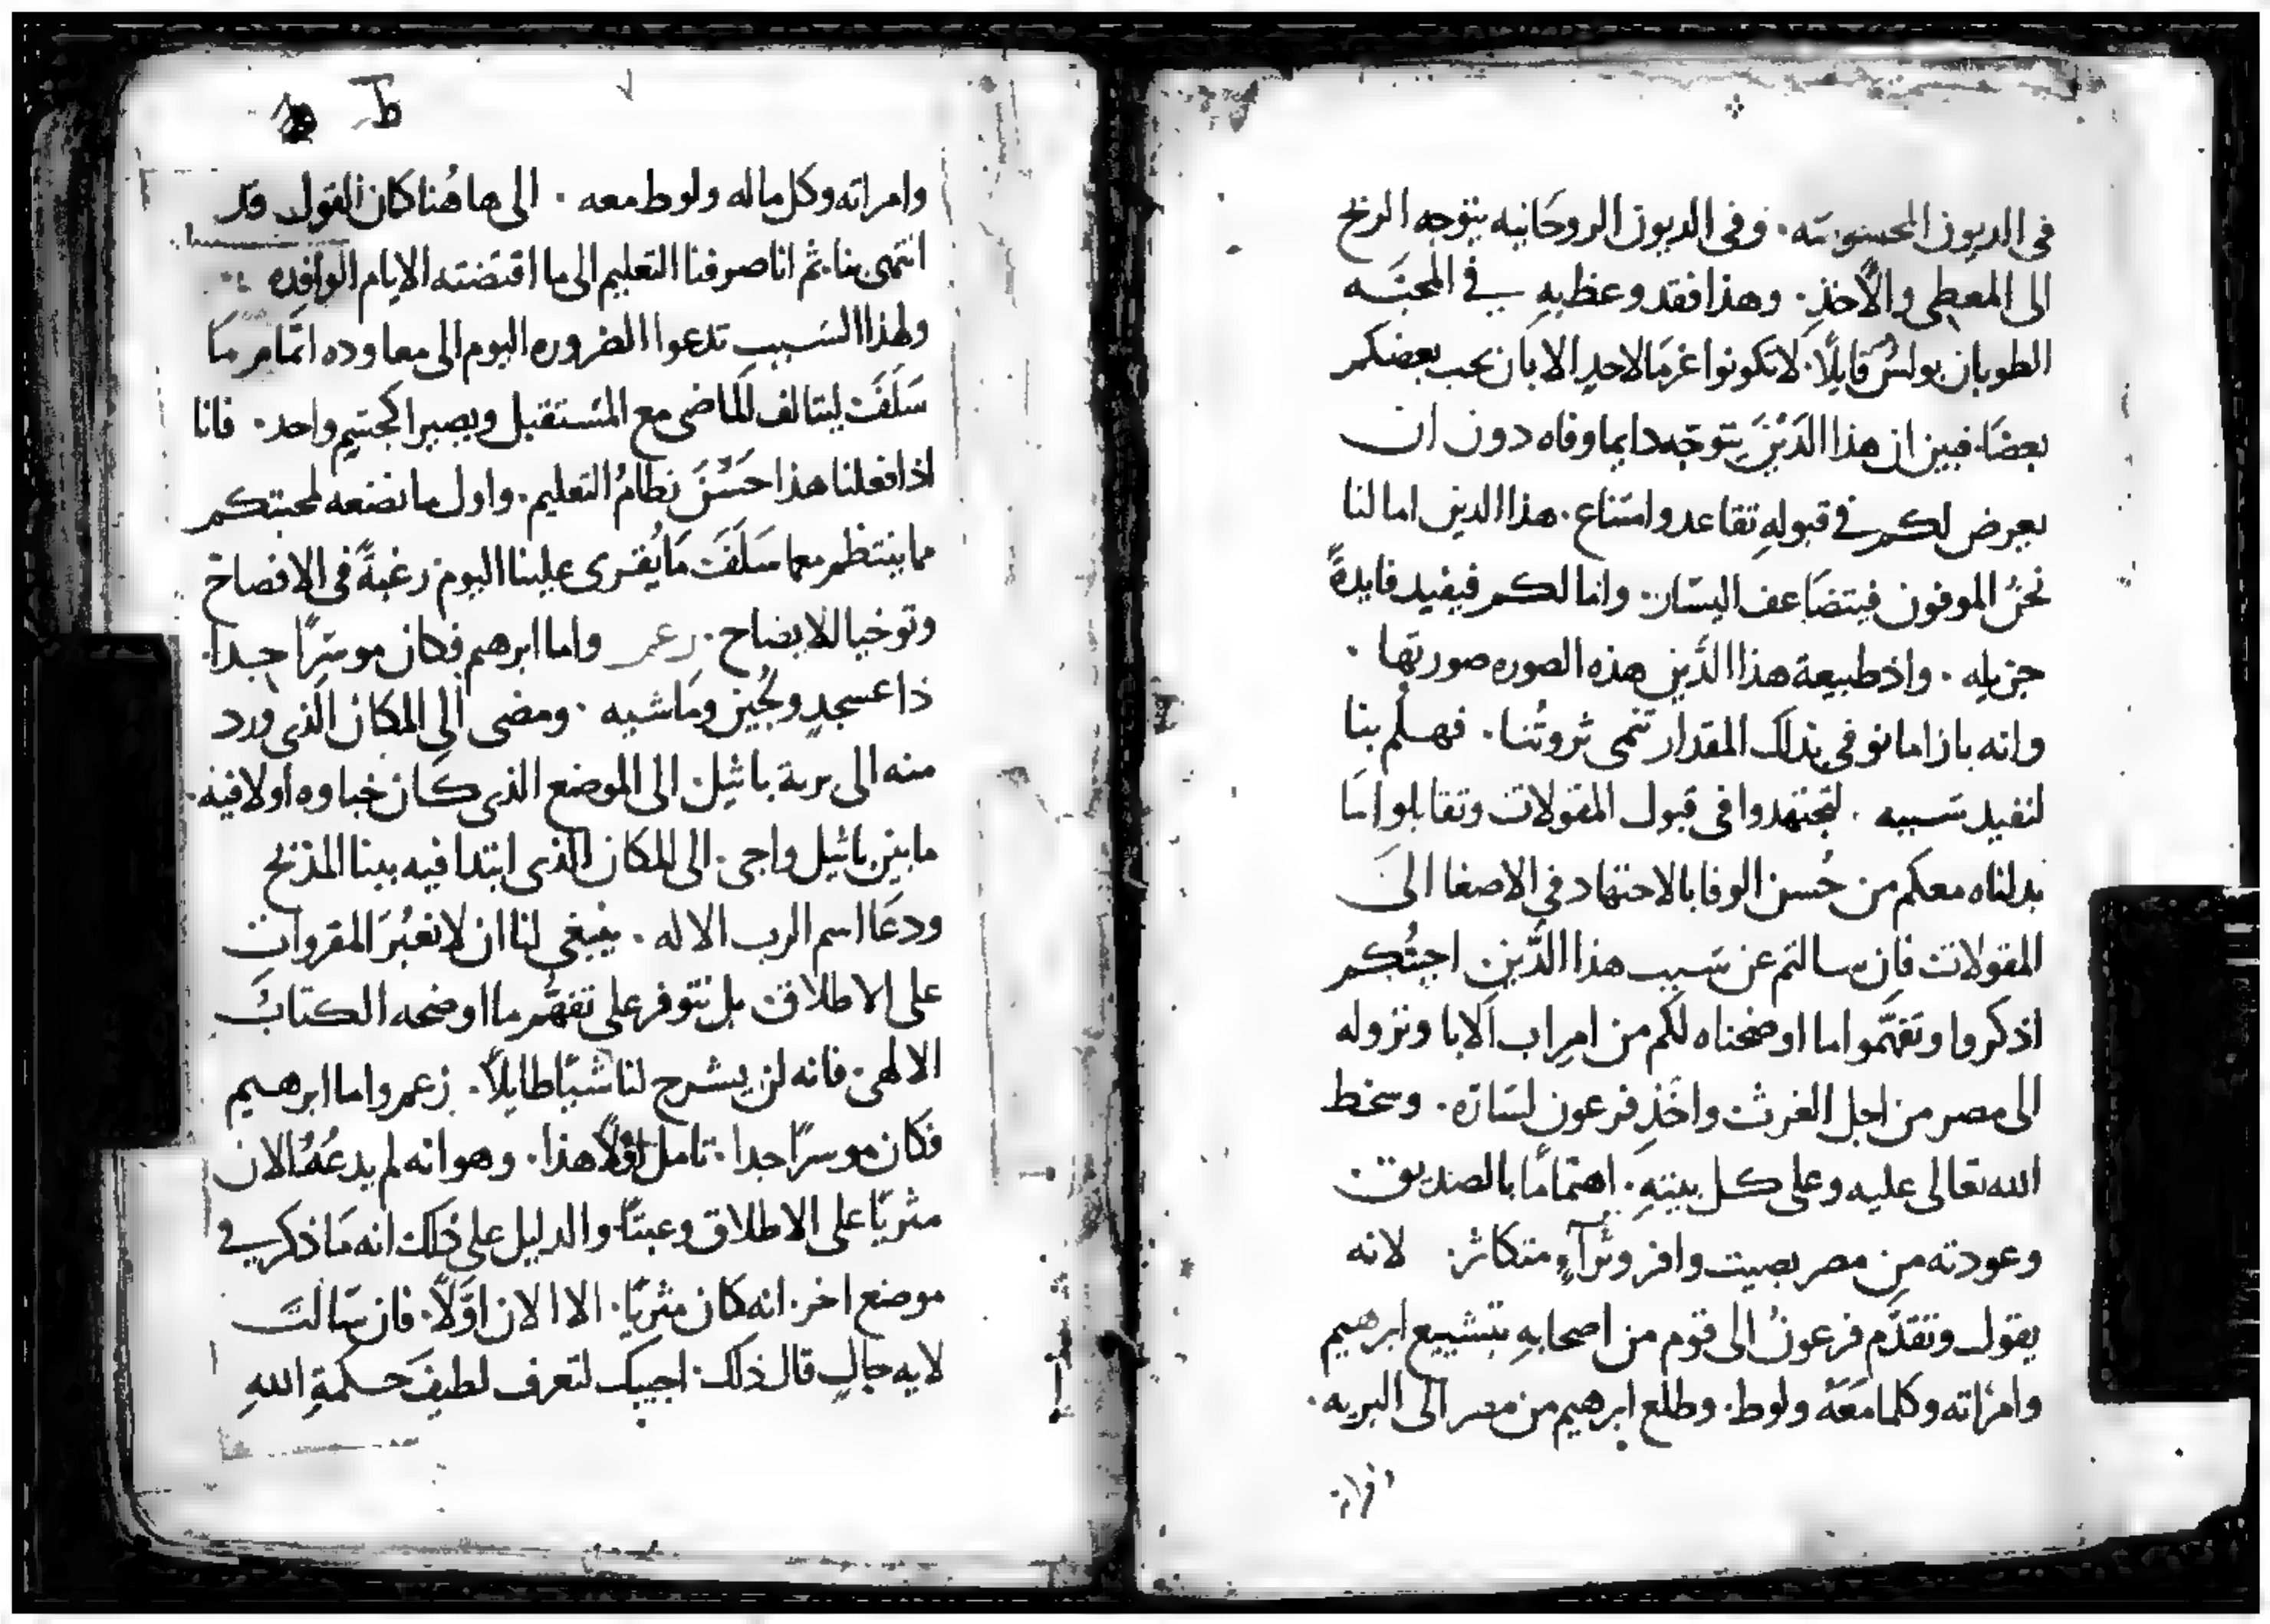 في الديون المحسوسّه . وفي الديون الروحَانيه يتوجه الربح
الى المعطى والأخذِ . وهذا فقد وعظ بهِ في المحبَّه
الطوبان بولسُ قايِلًا . لا تكونوا غرمَا لاحدٍ الا بان يحب بعضكم
بعضًا . فبين ان هذا الدَيْنَ يتوجّه دايما وفاه دون ان
يعرض لكم في قبولهِ تقاعد وامتناع . هذا الدين اما لنا
نحنُ الموفون فيتضَاعف اليسَار . واما لكم فيفيد فايدةً
جزيله . واذ طبيعة هذا الدَّين هذه الصوره صورتها .
وانه بازا ما نوفي بذلك المقدار تنمى ثروتُنا . فهلُم بنا
لنفيد سَببه . لتجتهدوا في قبول المقولات وتقابلوا مَا
بدلناه معكم من حُسن الوفا بالاجتهاد في الاصغا الىَ
المقولات فان سالتم عن سَبب هذا الدَّين اجبتُكم
اذكروا وتفهَّموا ما اوضحناه لكم من امرِ اب الابا ونزوله
الى مصر من اجل الغرث واخْذِ فرعون لسَارَه . وسخط
الله تعالى عليه وعلى كل بيتهِ . اهتمامًا بالصديق
وعودته من مصر بصيت وافر وثرآءٍ متكاثر . لانه
يقول وتقدَّم فرعونُ الى قوم من اصحابهِ بتشييع ابرهيم
وامرَاته وكلما معَهُ ولوط . وطلع ابرهيم من مصر الى البريه .
وامراته وكل ما له ولوط معه . الى هاهُنا كان القول قد
انتهى بنا . ثم انا صرفنا التعليم الى ما اقتضته الايام الوافده
ولهذا السَبب تدعوا الضروره اليوم الى معاوده اتمَام مَا
سَلَفَ ليتالف الماضي مع المسْتقبل ويصيرا كجسْم واحد . فانا
اذا فعلنا هذا حَسُنَ نظامُ التعليم . واول ما نضعه لمحبتكم
ما ينتظم معما سَلَفَ مَا يُقرى علينا اليوم رغبةً في الافصاح
وتوخيا للايضاح . زعم واما ابرهيم فكان موسَرًا جدا .
ذا عسجدٍ ولُجين ومَاشيه . ومضى الى المكان الذي ورد
منه الى برية باثيل الى الموضع الذي كان خباوه اولا فيه .
ما بين باثيل واجى . الى المكان الذي ابتدا فيه ببنا المذبح
ودعَا اسم الرب الاله . ينبغي لنا ان لا نعبُرَ المقروات
على الاطلاق بل نتوفر على تفهُّم ما اوضحه الكتابُ
الالهي . فانه لن يشرح لنا شيًا طايلًا . زعم واما ابرهيم
فكان موسرًا جدا . تامل اوّلًا هذا . وهو انه لم يدعُهُ الان
مثريًا على الاطلاق وعبثًا . والدليل على ذلك انه مَا ذكر في
موضع اخر . انه كان مثريًا . الا الان اوّلًا . فان سَالتَ
لايه حالٍ قال ذلك . اجيبك لتعرف لطيفَ حكمةِ اللهِ